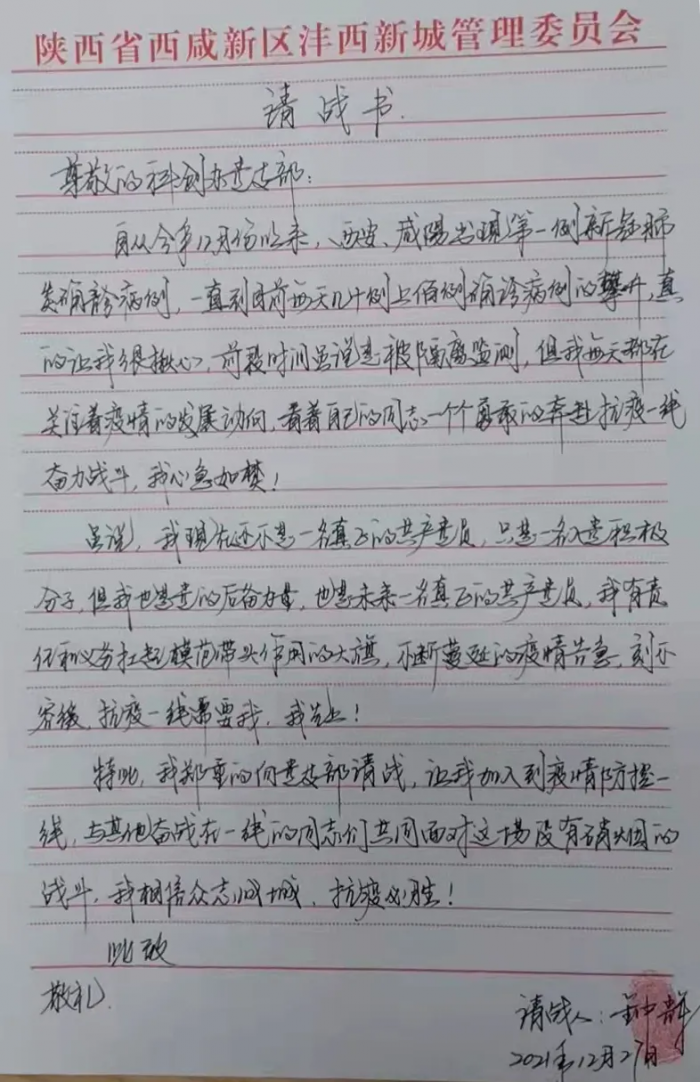 陕西省西咸新区沣西新城管理委员会
请战书.
尊敬的科创办党支部:
自从今年12月份以来,西安、咸阳出现第一例新冠肺
炎确诊病例,一直到目前每天几十例上佰例确诊病例的攀升,真
的让我很揪心,前段时间虽说是被隔离监测,但我每天都在
关注着疫情的发展动向,看着自己的同志一个个勇敢的奔赴抗疫一线
奋力战斗,我心急如焚!
虽说,我现在还不是一名真正的共产党员,只是一名入党积极
分子,但我也是党的后备力量,也是未来一名真正的共产党员,我有责
任和义务扛起模范带头作用的大旗,不断蔓延的疫情告急,刻不
容缓,抗疫一线需要我,我先上!
特此,我郑重的向党支部请战,让我加入到疫情防控一
线,与其他奋战在一线的同志们共同面对这场没有硝烟的
战斗,我相信众志成城,抗疫必胜!
此致
敬礼.
请战人:
2021年12月27日